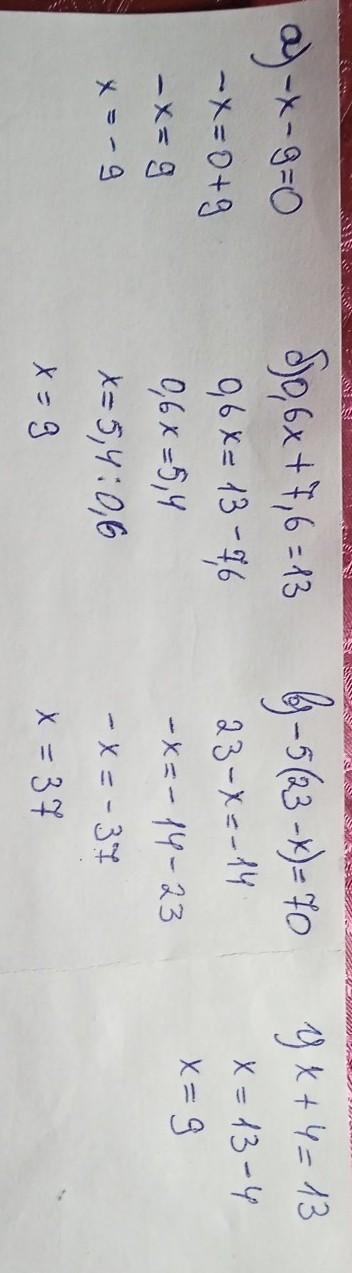 а) -x - 9 = 0
-x = 0 + 9
-x = 9
x = -9
б) 0,6x + 7,6 = 13
0,6x = 13 - 7,6
0,6x = 5,4
x = 5,4 : 0,6
x = 9
в) -5(23 - x) = 70
23 - x = -14
-x = -14 - 23
-x = -37
x = 37
г) x + 4 = 13
x = 13 - 4
x = 9